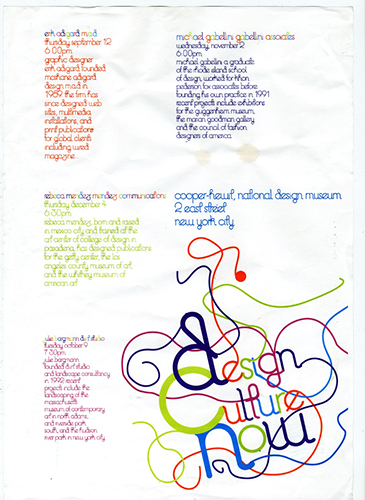 erik adigard m.a.d.
thursday september 12
6:00pm
graphic designer
erik adigard founded
m.a.d. in
1989 the firm has
since designed web
sites, multimedia
installations, and
print publications
for global clients
including wired
magazine
michael gabellini gabellini associates
wednesday, november 2
6:00pm
michael gabellini a graduate
of the rhode island school
of design, worked for
pederson fox associates before
founding his own practice in 1991
recent projects include exhibitions
for the guggenheim museum,
the marian goodman gallery
and the council of fashion
designers of america
rebeca mendez mendez communications
thursday december 4
6:30pm
rebeca mendez, born and raised
in mexico city and trained at the
art center of college of design in
pasadena, has designed publications
for the getty center, the los
angeles county museum of art,
and the whitney museum of
american art
cooper-hewit, national design museum
2 east street
new york city
julie bargmann dirt studio
tuesday october 9
7:30pm
julie bargmann
founded dirt studio
and landscape consultancy
in 1992 recent
projects include the
landscaping of the
massachusetts
museum of contemporary
art in north adams,
and riverside park
south, and the hudson
river park in new york city
design
culture
now